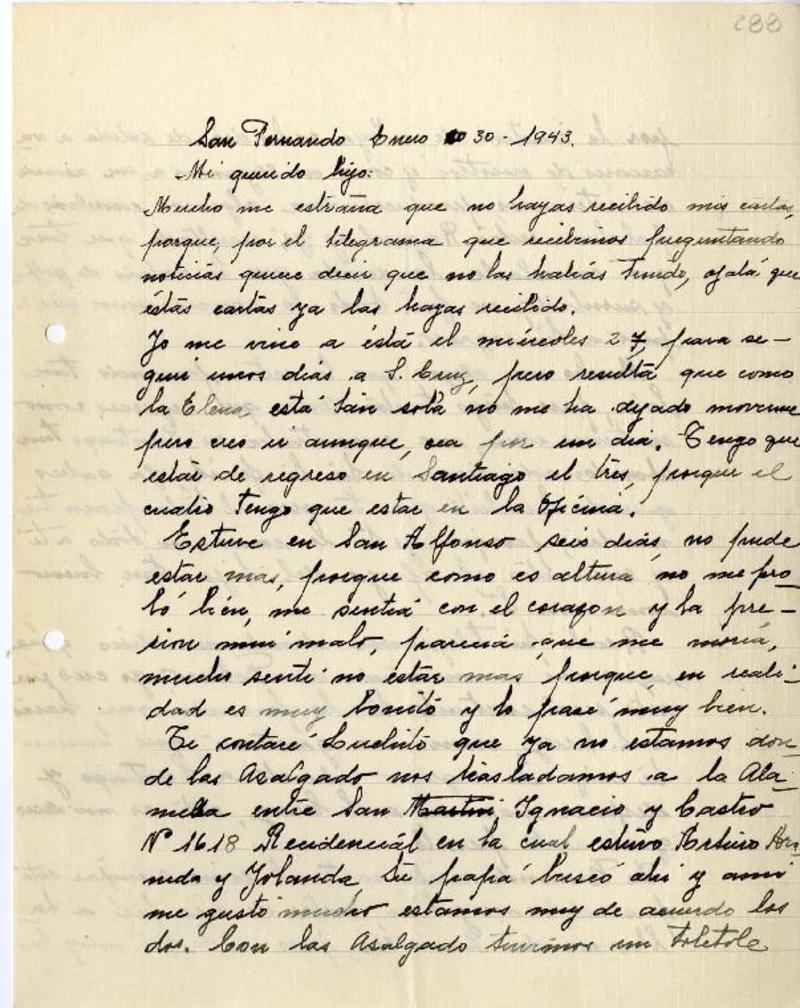 288
San Fernando Enero 30 - 1943.
Mi querido hijo:
Mucho me estraña que no hayas recibido mis cartas,
porque, por el telegrama que recibimos preguntando
noticias quiere decir que no las habias tenido, ojalá que
éstas cartas ya las hayas recibido.
Yo me vine a ésta el miércoles 27, para se-
guir unos dias a S. Cruz, pero resulta que como
la Elena está tan sola no me ha dejado moverme
pero creo ir aunque, sea por un dia. Tengo que
estar de regreso en Santiago el tres, porque el
cuatro tengo que estar en la Oficina.
Estuve en San Alfonso seis dias, no pude
estar mas, porque como es altura no me pro-
bó bien, me sentia con el corazon y la pre-
sion mui malo, parecia que me moria,
mucho senti no estar mas porque, en reali-
dad es muy bonito y lo pasé muy bien.
Te contaré Luchito que ya no estamos don-
de las Asalgado nos trasladamos a la Ala-
meda entre San Martin Ignacio y Castro
Nº 1618 Residencial en la cual estuvo Arturo
y Yolanda, Tu papá buscó ahi y ami
me gustó mucho estamos muy de acuerdo los
dos. Con las Asalgado tuvimos un toletole